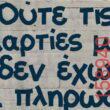 Ούτε τη
αρτίες
δεν έχε
πληρω